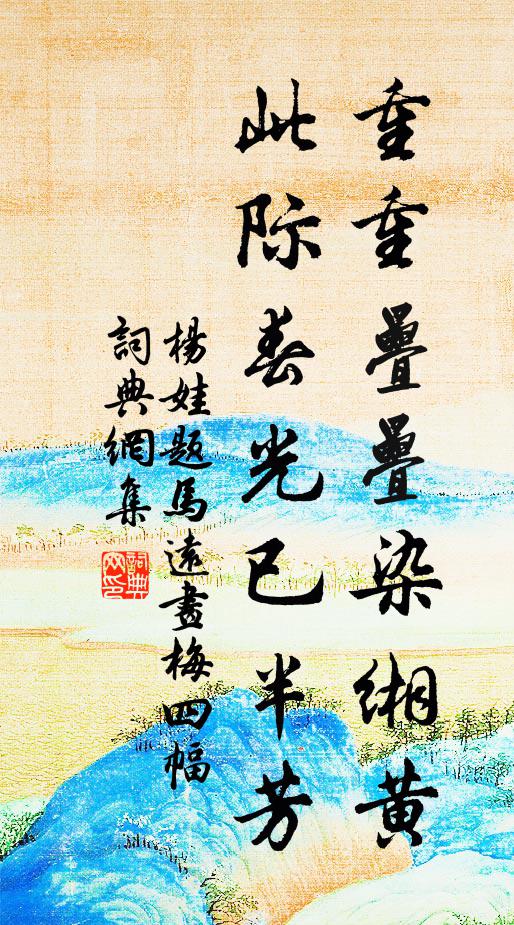 重重疊疊染緗黃
此際春光已半芳
楊娃題馬遠畫梅四幅
詞典網集
詞典
网印